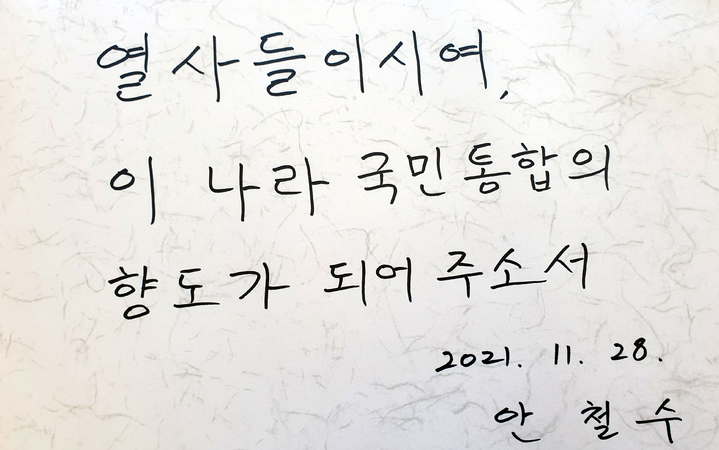 열사들이시여,
이 나라 국민통합의
향도가 되어 주소서
2021. 11. 28.
안 철 수